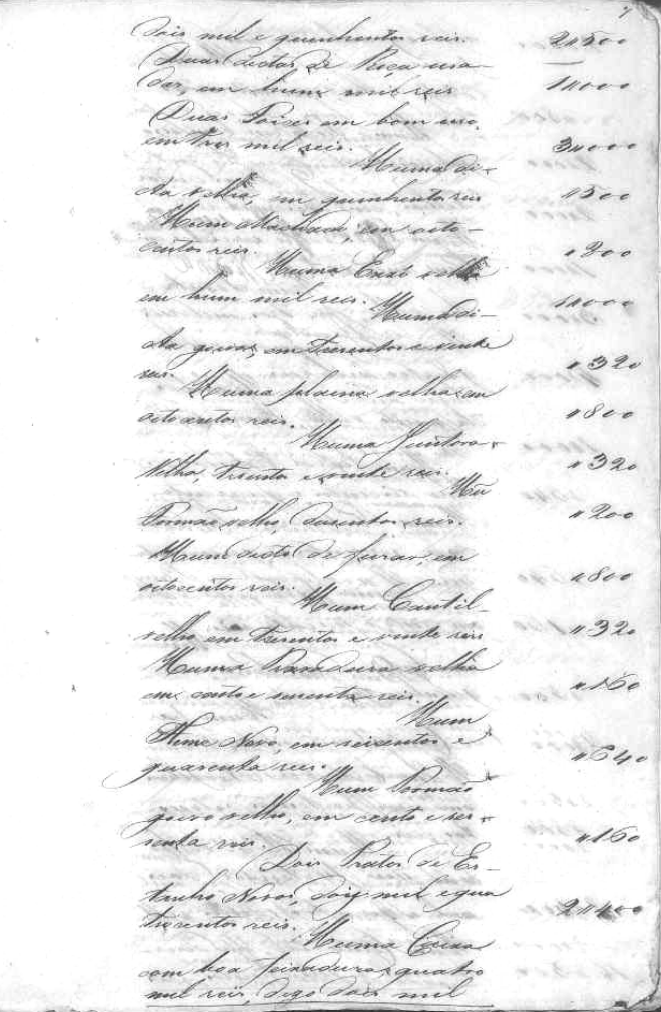 dois mil e quinhentos reis. 2#500
Duas dittas de Roça usa-
das, em hum mil reis 1#000
Duas Foices em bom uso,
em tres mil reis. 3#000
Huma di-
ta velha, em quinhentos reis #500
Hum Machado, em oito-
centos reis. #800
Huma Enxó velha
em hum mil reis. 1#000
Huma di-
ta goiva, em tresentos e vinte
reis. #320
Huma plaina velha em
oitocentos reis. #800
Huma Juntora
Velha, tresentos e vinte reis. #320
Hũ
Formão velho, dusentos reis. #200
Hum dito de furar, em
oitocentos reis. #800
Hum Cantil
velho em tresentos e vinte reis #320
Huma velha
em cento e secenta reis. #160
Hum
Novo, em seiscentos e
quarenta reis. #640
Hum Formão
goivo velho, em cento e ses-
senta reis. #160
Dois Pratos de Es-
tanho Novos, dois mil e qua
trosentos reis. 2#400
Huma Caixa
com boa feixadura, quatro
mil reis, digo dois mil